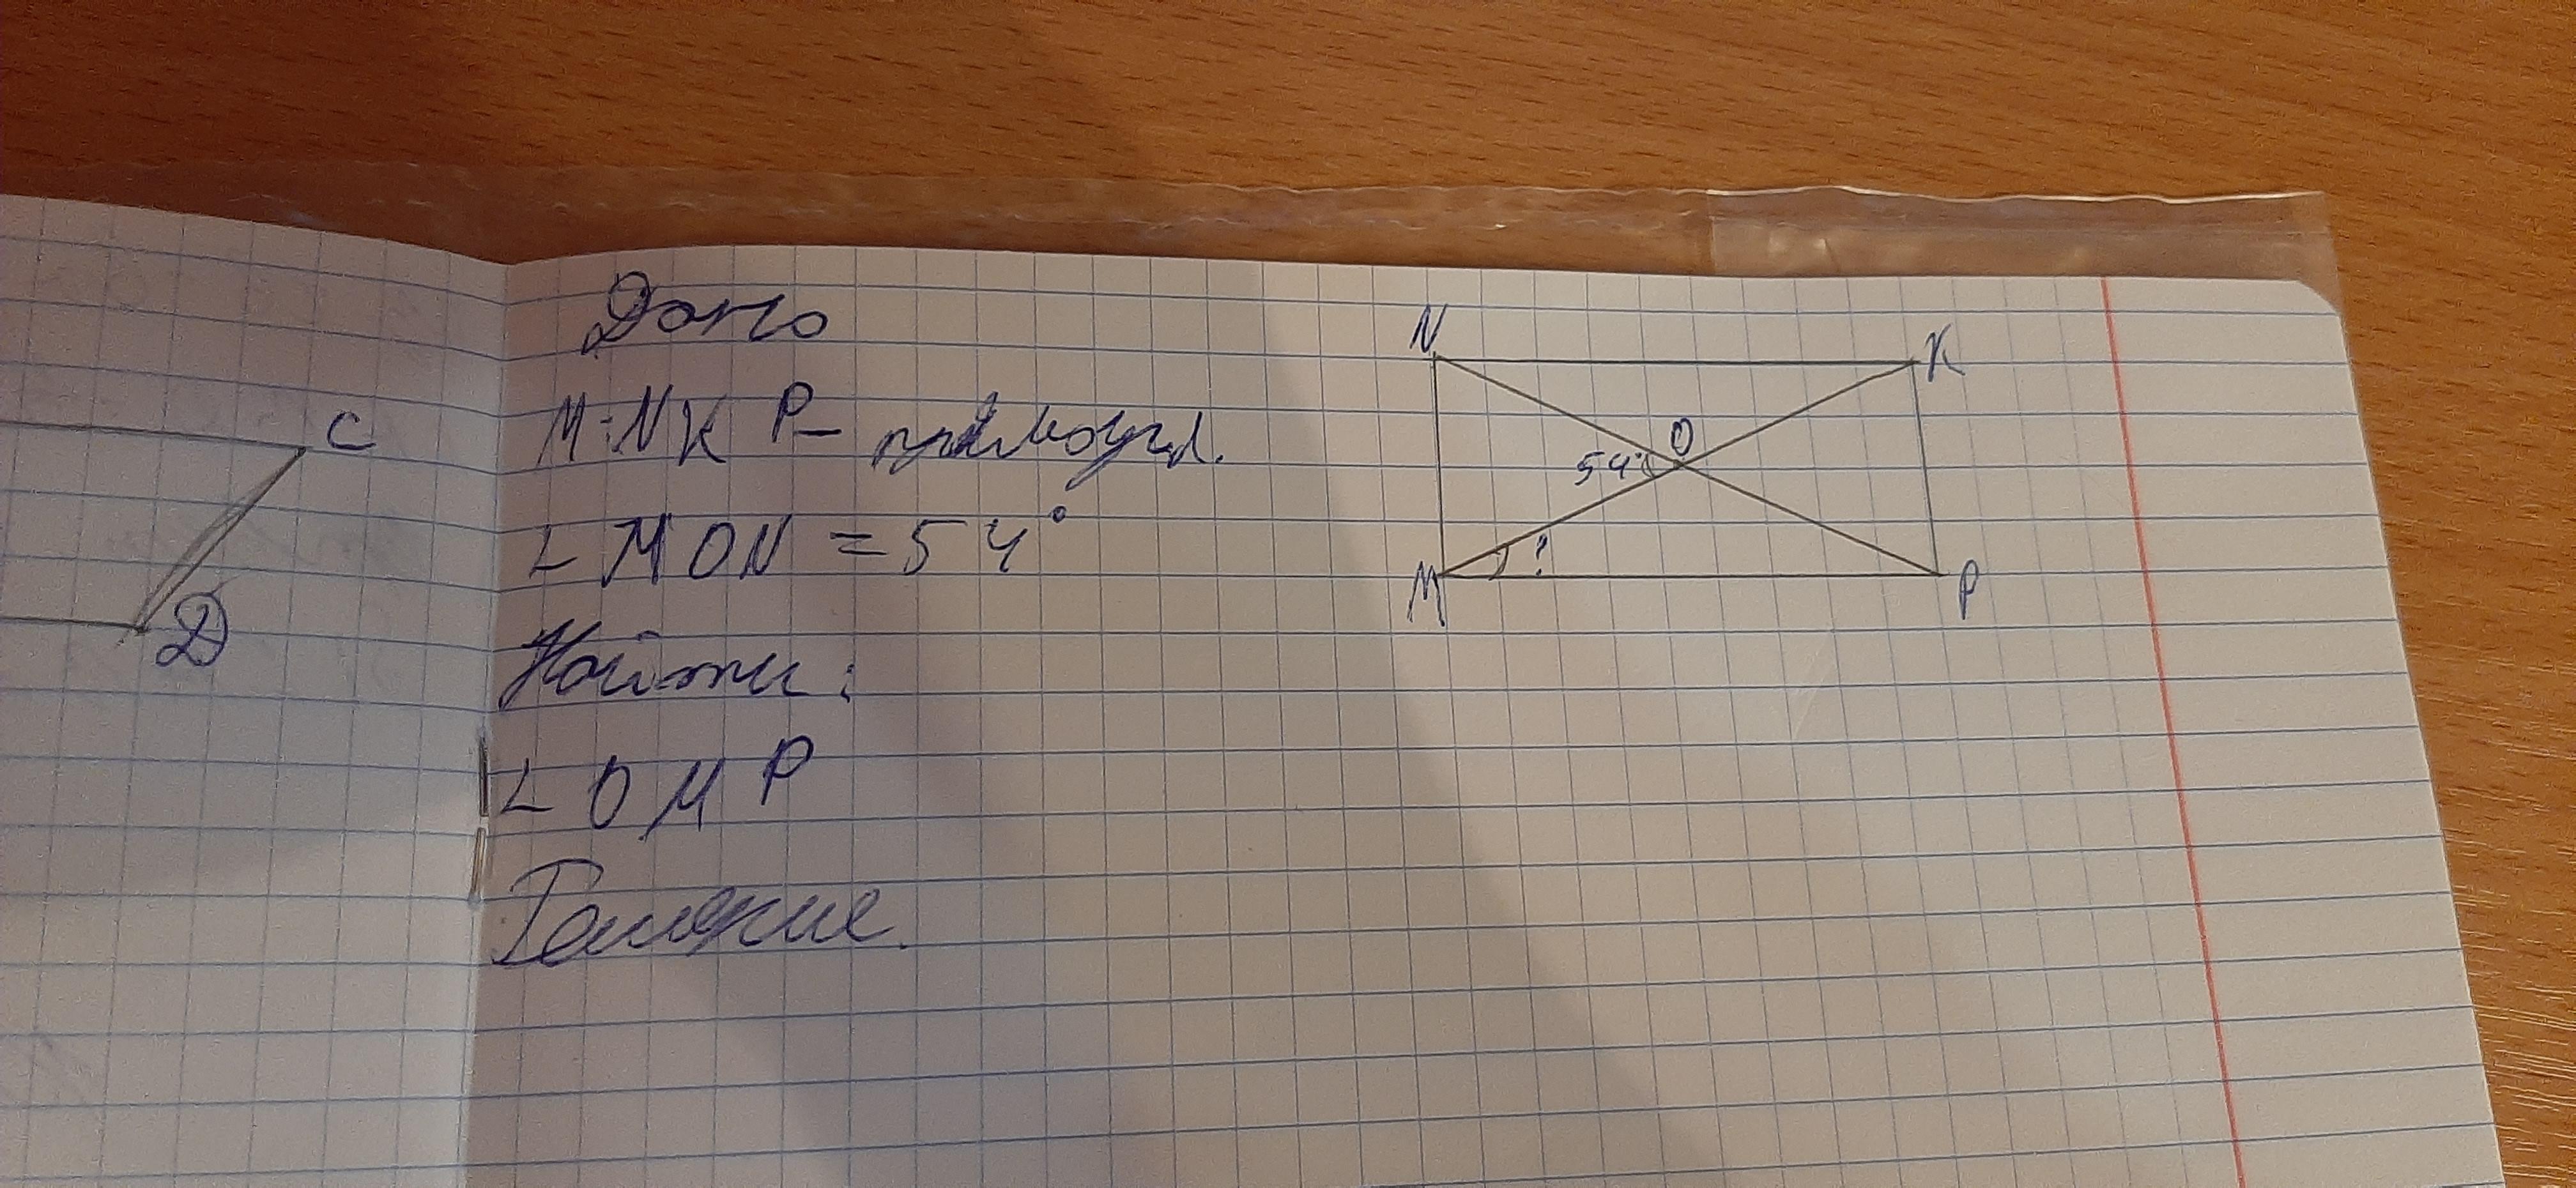 Дано
MNKP – прямоугл.
∠ MON = 54°
Найти:
∠ OMP
Решение.
N
K
O
54°
?
M
P
C
D